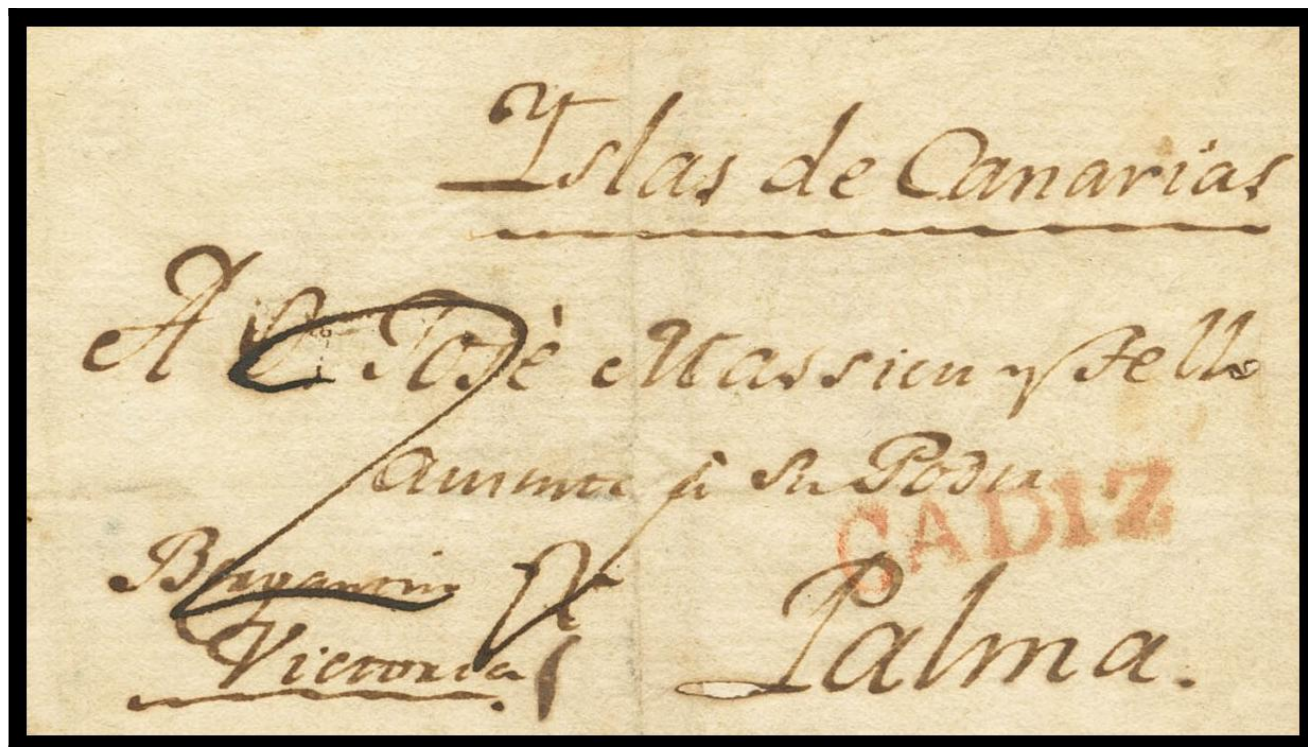 Yslas de Canarias
A Dn José Massieu y Tello
ausente á su Poder
CADIZ
Bergantin
Victoria
Palma.